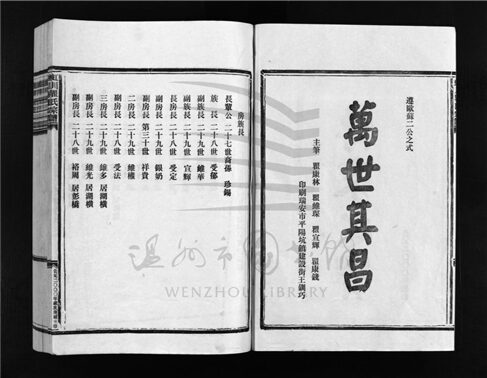 遵歐蘇二公之式
萬世其昌
主筆 瞿康林 瞿維琛 瞿宣輝 瞿康錢
印刷瑞安市平陽坑鎮建設街王釧巧
房族長
長輩公 二十七世裔孫 珍錫
族長 二十八世 受郁
副族長 二十九世 維華
副族長 二十八世 宣輝
長房長 二十八世 受定
副房長 二十九世 銀奶
副房長 第三十世 祥貴
二房長 二十九世 維權
副房長 二十八世 受法
三房長 二十九世 維多 居湖橫
副房長 二十九世 維光 居湖橫
副房長 二十八世 裕周 居彭橋
溫州市圖書館
WENZHOU LIBRARY